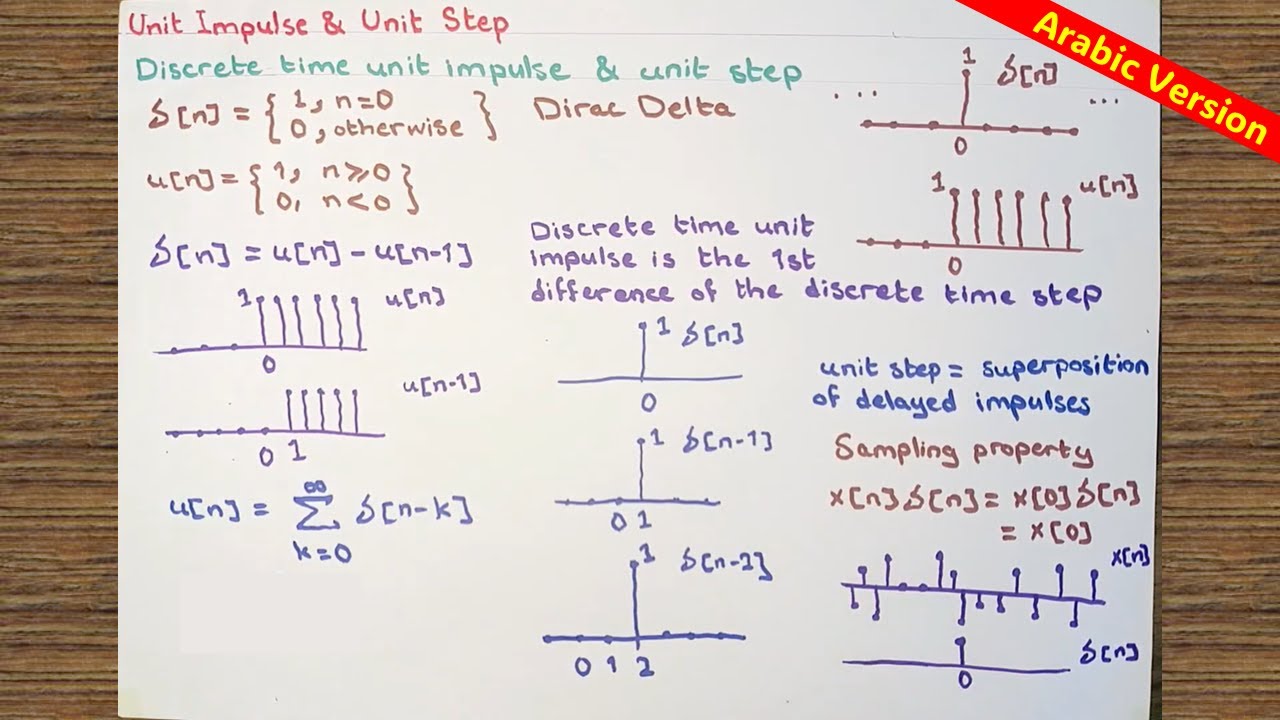 Unit Impulse & Unit Step
Arabic Version
Discrete time unit impulse & unit step
δ[n] = { 1, n=0
0, otherwise } Dirac Delta
... 1 δ[n] ...
0
u[n] = { 1, n≥0
0, n<0 }
1 u[n]
0
δ[n] = u[n] - u[n-1]
Discrete time unit
impulse is the 1st
difference of the discrete time step
1 u[n]
0
u[n-1]
0 1
u[n] = ∞ Σ k=0 δ[n-k]
1 δ[n]
0
1 δ[n-1]
0 1
1 δ[n-2]
0 1 2
unit step = superposition
of delayed impulses
Sampling property
x[n] δ[n] = x[0] δ[n]
= x[0]
x[n]
δ[n]
0